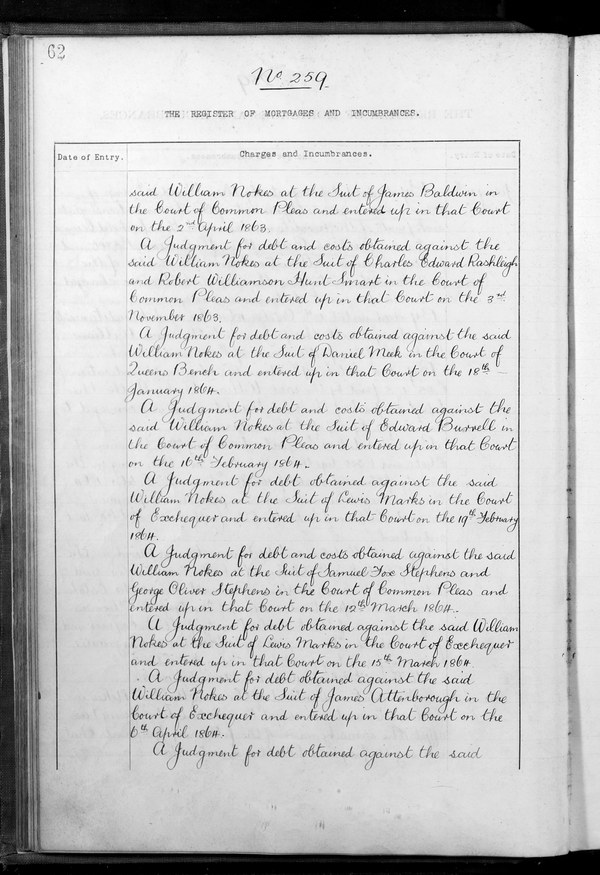 62
No 259
THE REGISTER OF MORTGAGES AND INCUMBRANCES.
Date of Entry.
Charges and Incumbrances.
said William Nokes at the Suit of James Baldwin in
the Court of Common Pleas and entered up in that Court
on the 2nd April 1863.
A Judgment for debt and costs obtained against the
said William Nokes at the Suit of Charles Edward Rashleigh
and Robert Williamson Hunt Smart in the Court of
Common Pleas and entered up in that Court on the 3rd
November 1863.
A Judgment for debt and costs obtained against the said
William Nokes at the Suit of Daniel Meek in the Court of
Queens Bench and entered up in that Court on the 18th
January 1864.
A Judgment for debt and costs obtained against the
said William Nokes at the Suit of Edward Burrell in
the Court of Common Pleas and entered up in that Court
on the 16th February 1864.
A Judgment for debt obtained against the said
William Nokes at the Suit of Lewis Marks in the Court
of Exchequer and entered up in that Court on the 19th February
1864.
A Judgment for debt and costs obtained against the said
William Nokes at the Suit of Samuel Fox Stephens and
George Oliver Stephens in the Court of Common Pleas and
entered up in that Court on the 12th March 1864.
A Judgment for debt obtained against the said William
Nokes at the Suit of Lewis Marks in the Court of Exchequer
and entered up in that Court on the 15th March 1864.
A Judgment for debt obtained against the said
William Nokes at the Suit of James Attenborough in the
Court of Exchequer and entered up in that Court on the
6th April 1864.
A Judgment for debt obtained against the said